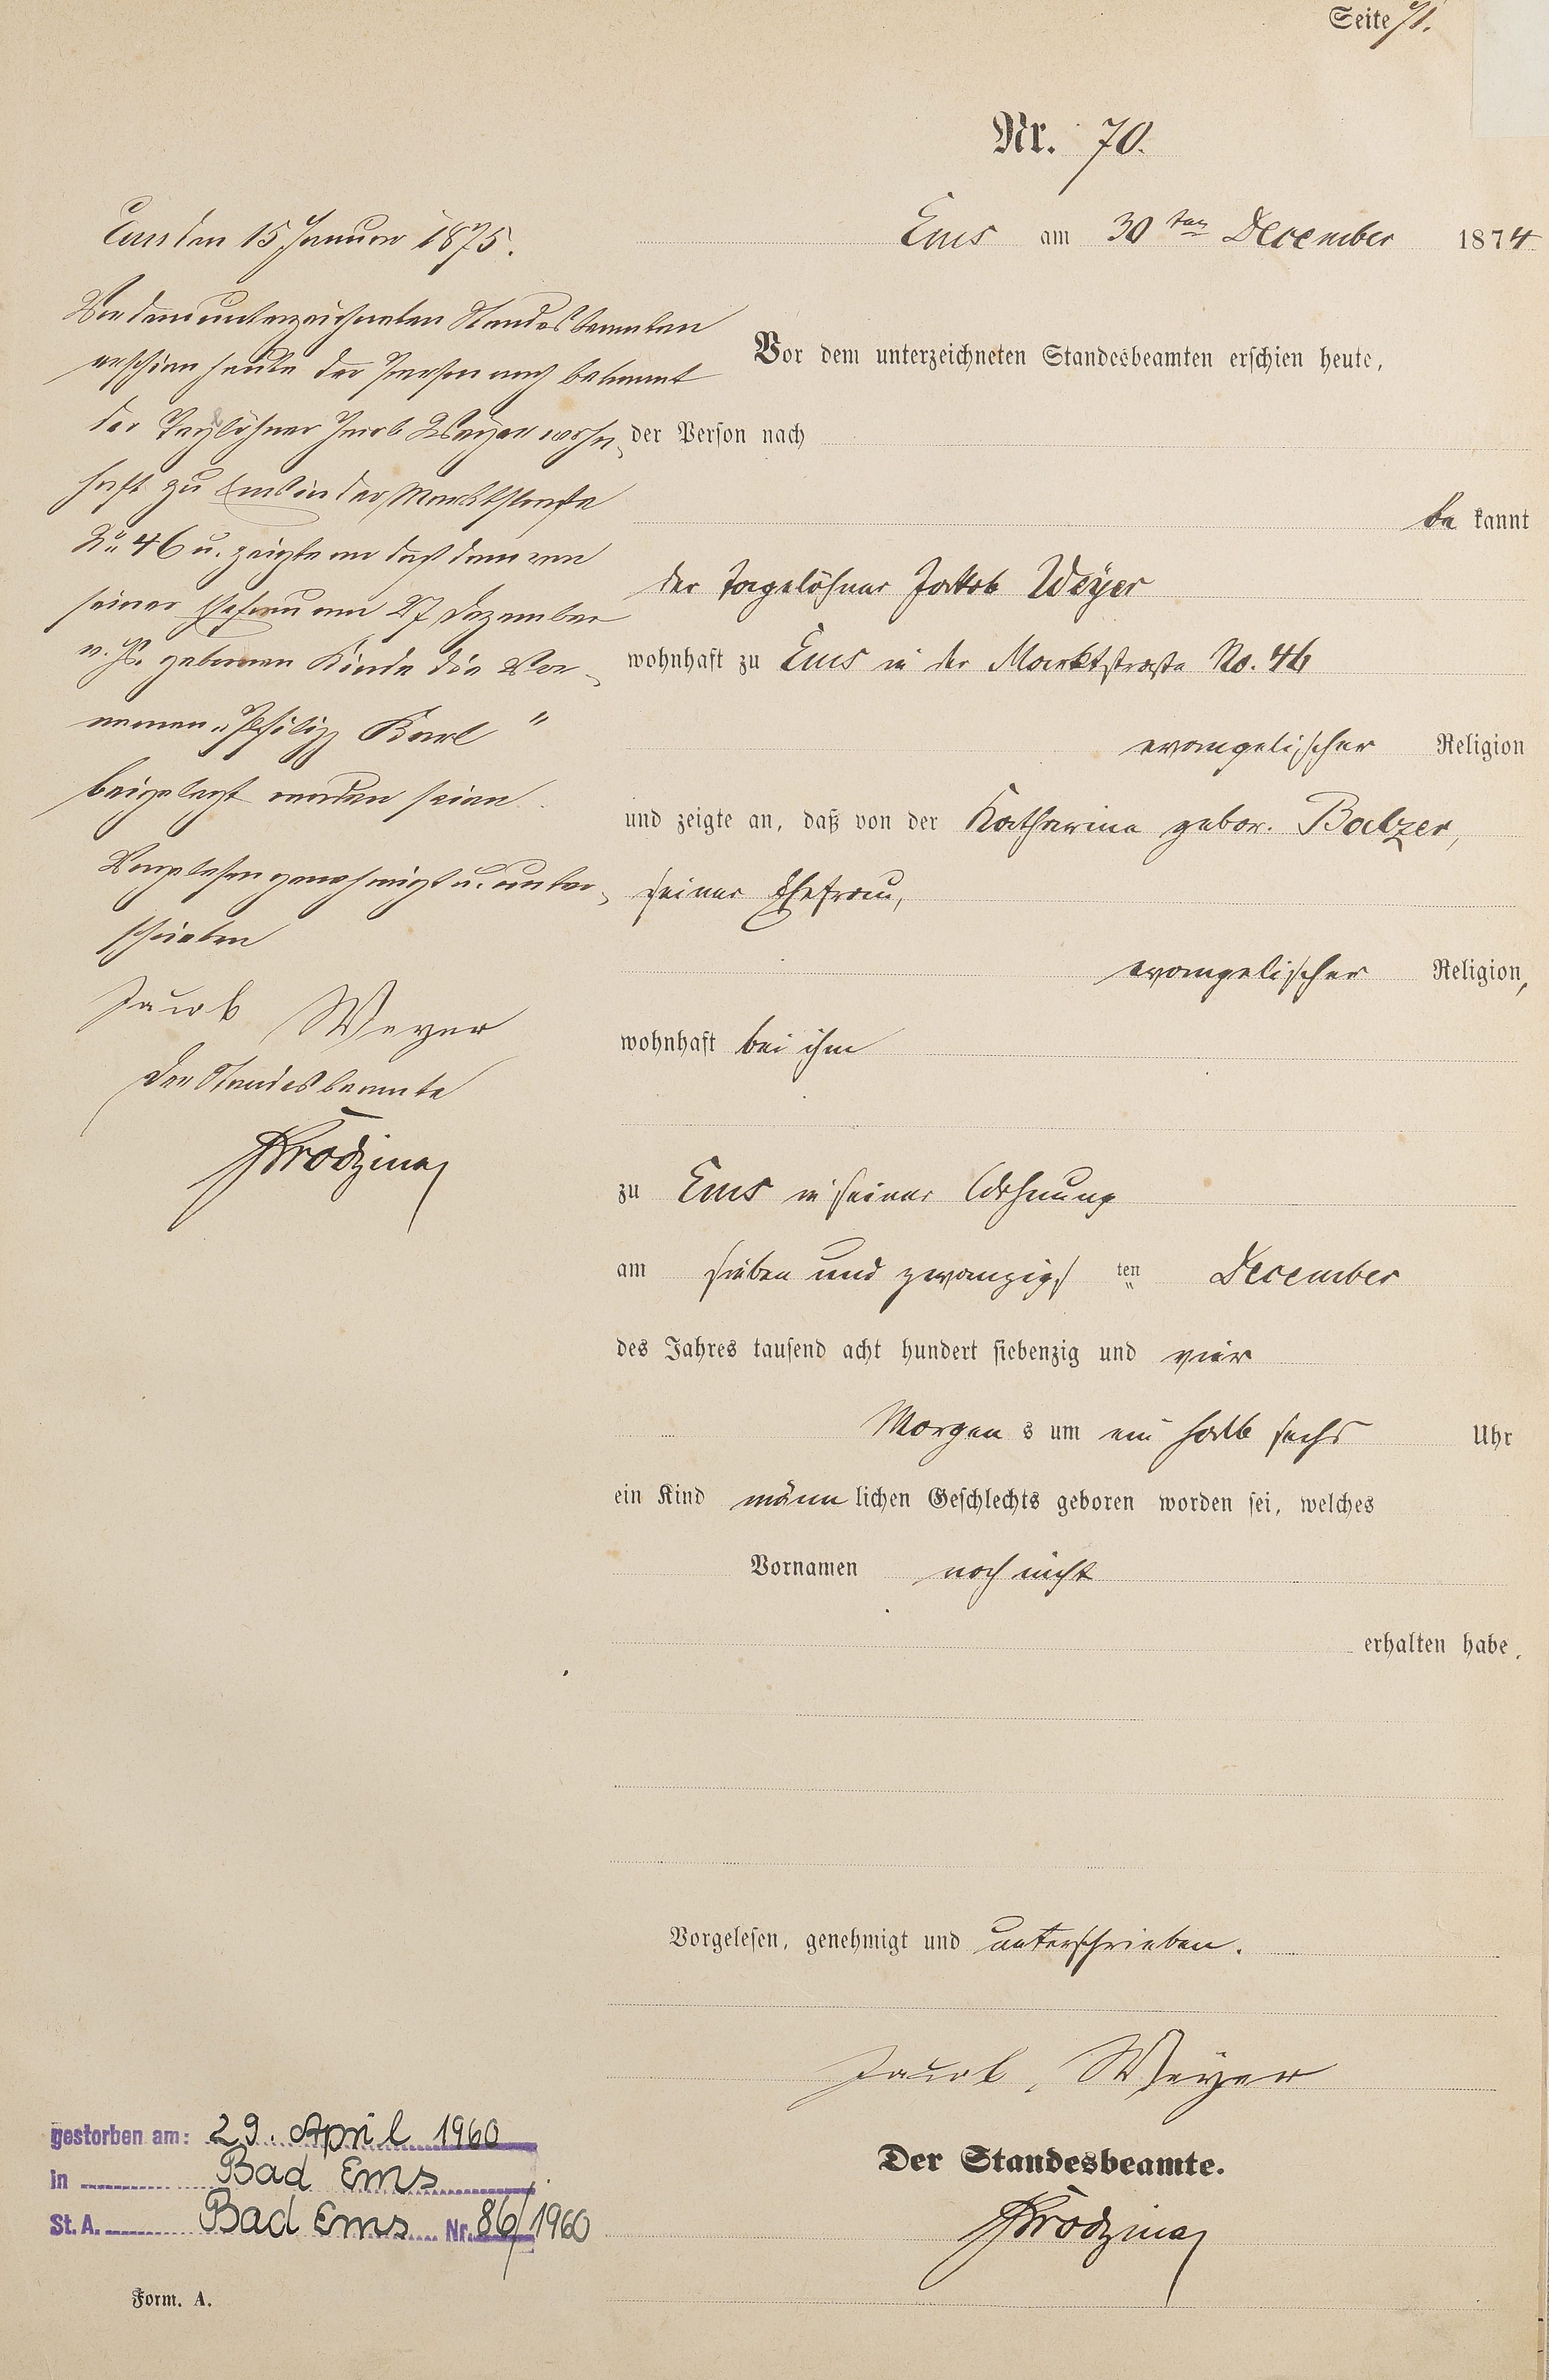 Seite 71.
Nr. 70.
Ems am 30ten December 1874
Vor dem unterzeichneten Standesbeamten erschien heute,
der Person nach
be kannt
der Tagelöhner Jakob Weyer
wohnhaft zu Ems in der Marktstraße No. 46
evangelischer Religion
und zeigte an, daß von der Katharina gebor. Balzer,
seiner Ehefrau,
evangelischer Religion,
wohnhaft bei ihm
zu Ems in seiner Wohnung
am sieben und zwanzigs ten December
des Jahres tausend acht hundert siebenzig und vier
Morgen s um ein halb sechs Uhr
ein Kind männ lichen Geschlechts geboren worden sei, welches
Vornamen noch nicht
erhalten habe.
Vorgelesen, genehmigt und unterschrieben.
Jacob Weyer
Der Standesbeamte.
Ems den 15 Januar 1875.
Vor dem unterzeichneten Standesbeamten
erschien heute der Person nach bekannt
der Taglöhner Jacob Weyer wohn-
haft zu Ems in der Marktstraße
No 46 u. zeigte an daß dem von
seiner Ehefrau am 27 Dezember
v. Js. gebornen Kinde die Vor-
namen "Philipp Karl"
beigelegt worden seien
Vorgelesen genehmigt u. unter-
schrieben
Jacob Weyer
Der Standesbeamte
gestorben am: 29. April 1960
in Bad Ems
St. A. Bad Ems Nr. 86/1960
Form. A.